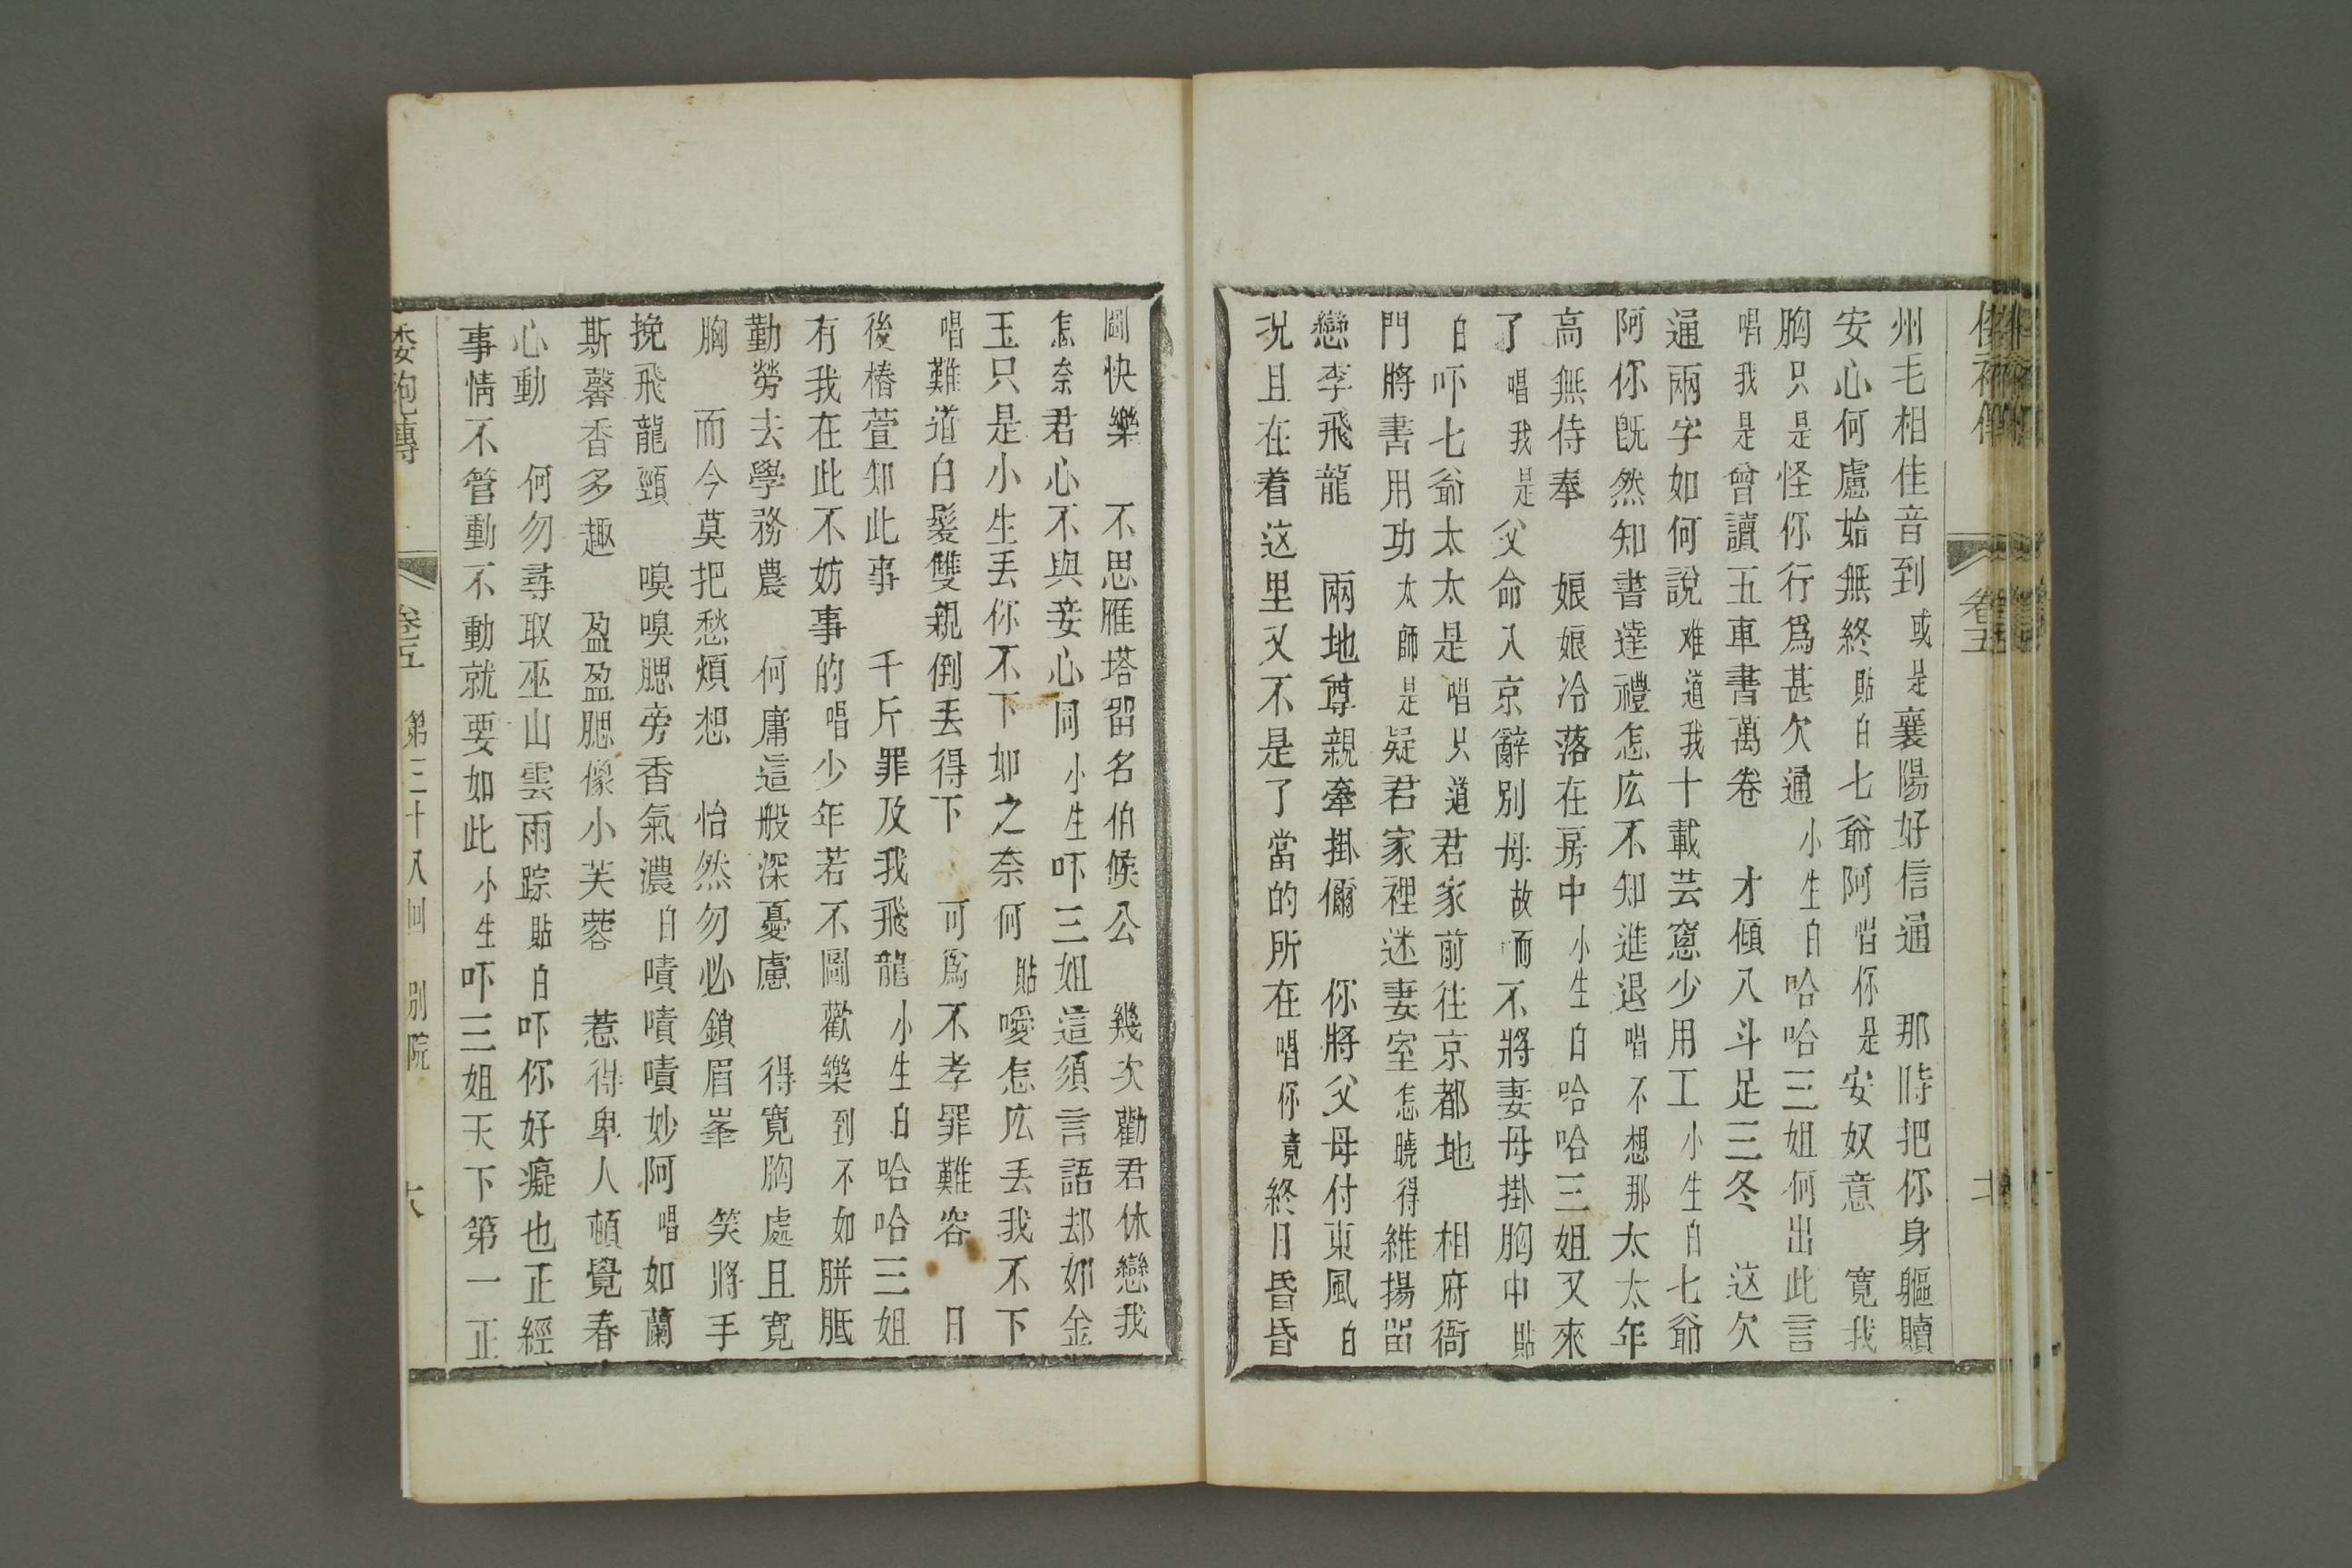 州毛相佳音到或是襄陽好信通　那時把你身軀贖
安心何慮始無終貼白七爺阿唱你是安奴意　寬我
胸只是怪你行爲甚欠通小生白哈哈三姐何出此言
唱我是曾讀五車書萬卷　才傾八斗足三冬　这欠
通兩字如何說难道我十載芸窓少用工小生白七爺
阿你既然知書達禮怎庅不知進退唱不想那太太年
高無侍奉　娘娘冷落在房中小生白哈哈三姐又來
了唱我是父命入京辭別母故而不將妻母掛胸中貼
白吓七爺太太是唱只道君家前往京都地　相府衙
門將書用功太師是疑君家裡迷妻室怎曉得維揚畱
戀李飛龍　兩地尊親牽掛儞　你將父母付東風白
况且在着这里又不是了當的所在唱你竟終日昏昏
圖快樂　不思雁塔畱名伯候公　幾次勸君休戀我
怎奈君心不與妾心同小生吓三姐這須言語却如金
玉只是小生丟你不下如之奈何貼噯怎庅丟我不下
唱難道白髮雙親倒丟得下　可爲不孝罪難容　日
後椿萱知此事　千斤罪及我飛龍小生白哈哈三姐
有我在此不妨事的唱少年若不圖歡樂到不如胼胝
勤勞去學務農　何庸這般深憂慮　得寬胸處且寬
胸　而今莫把愁煩想　怡然勿必鎖眉峯　笑將手
挽飛龍頸　嗅嗅腮旁香氣濃白嘖嘖嘖妙阿唱如蘭
斯馨香多趣　盈盈腮像小芙蓉　惹得卑人頓覺春
心動　何勿尋取巫山雲雨踪貼白吓你好癡也正經
事情不管動不動就要如此小生吓三姐天下第一正
卷五　第三十八回　別院